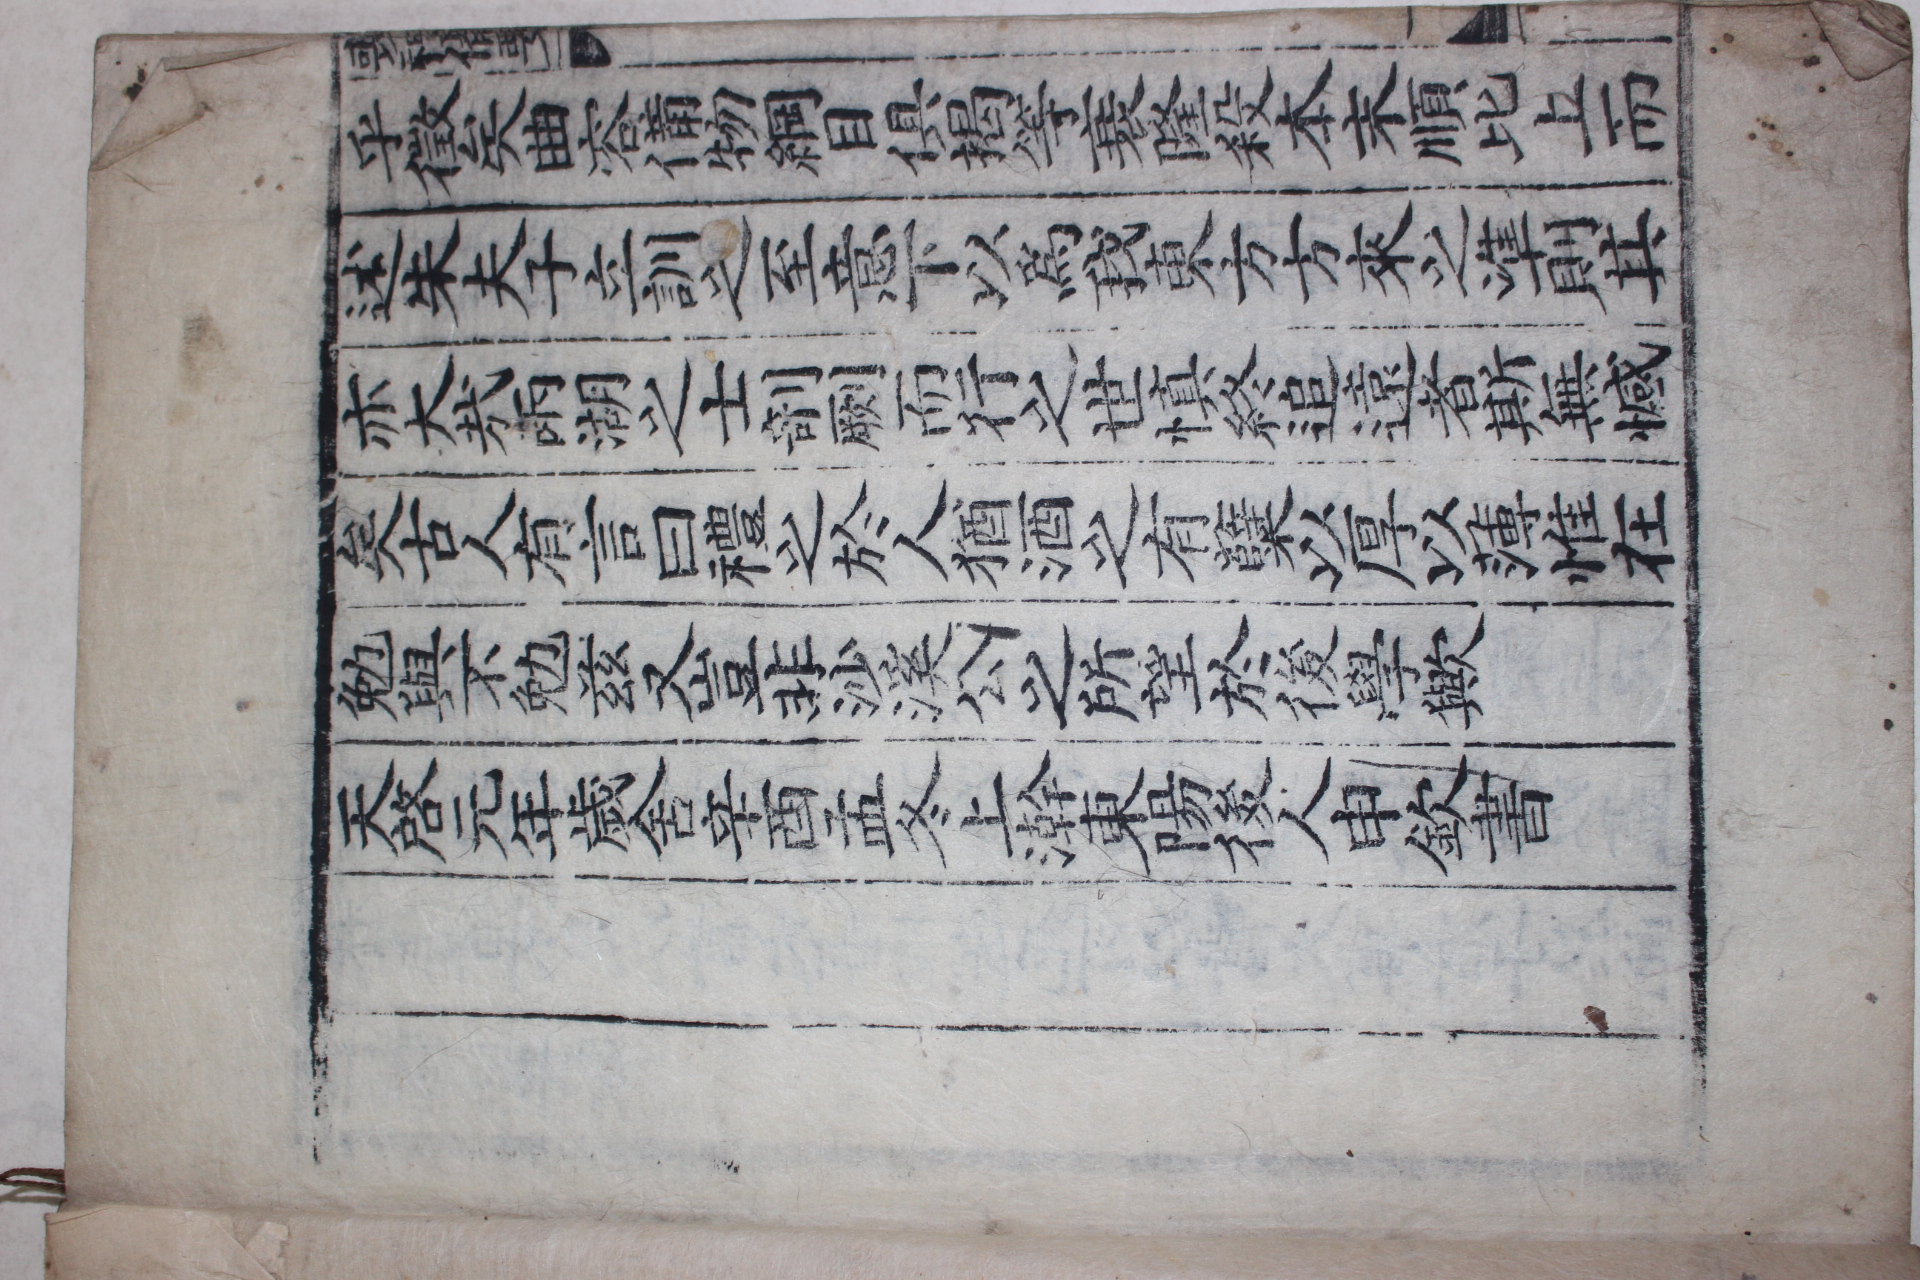 喪禮備要
乎徵矣曲容備物綱目俱揭等衰隆殺本末順比上而
述朱夫子立訓之至意下以爲我東方方來之準則其
亦大哉両湖之士剞劂而行之世慎終追遠者斯無憾
矣古人有言曰禮之於人猶酒之有糵以厚以薄惟在
勉與不勉茲又豈非沙溪公之所望於後學歟
天啓元年歲舍辛酉孟冬上澣東陽後人申欽書